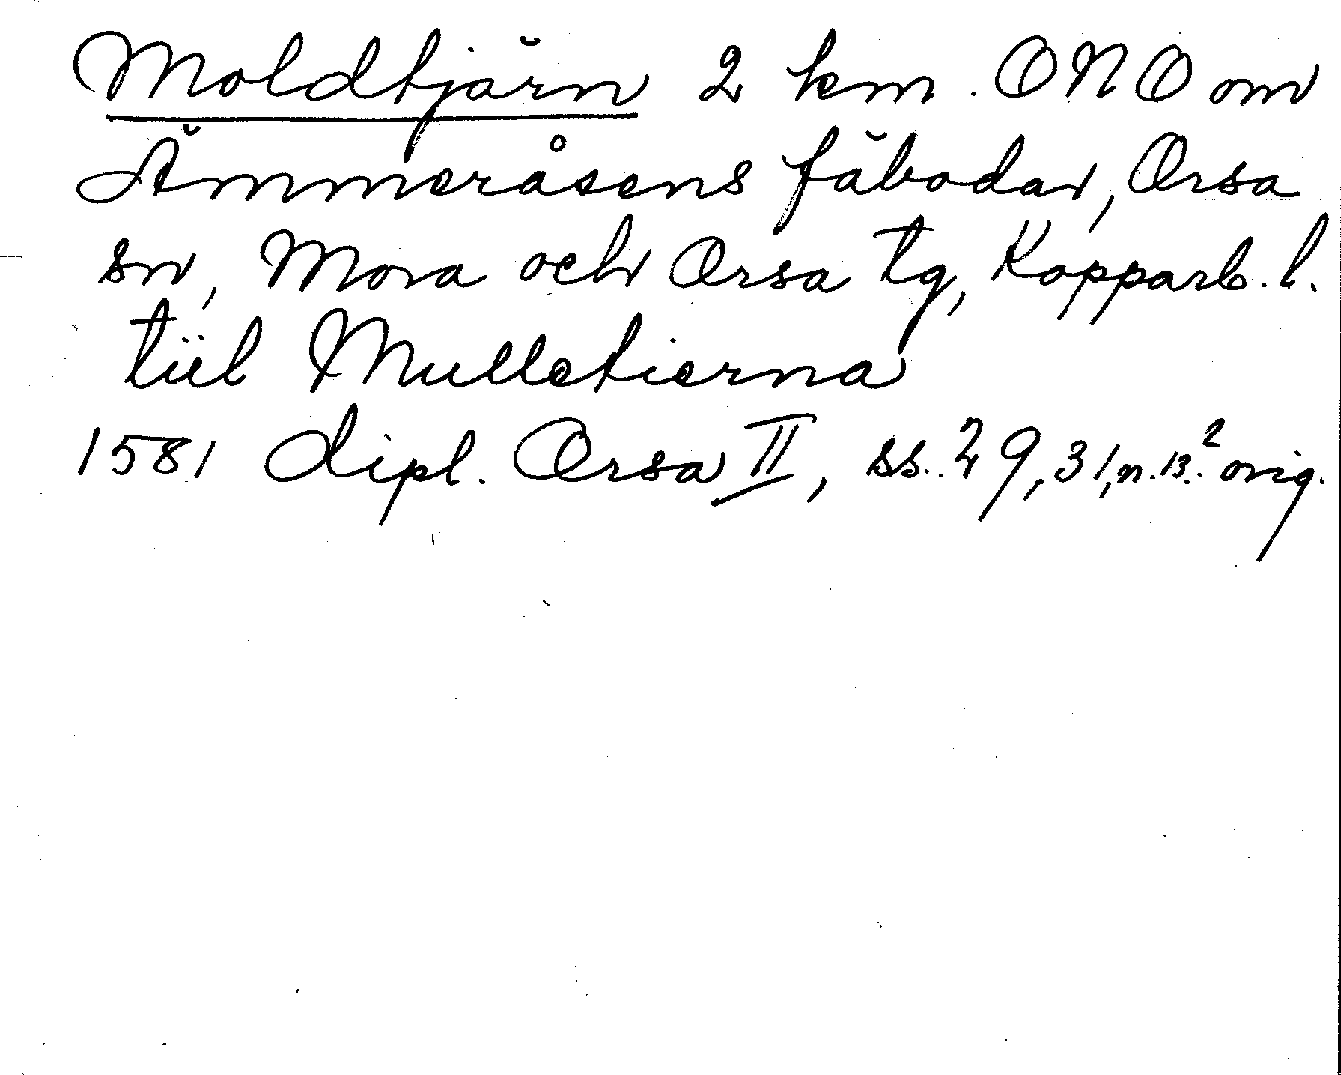 Moldtjärn 2 km. ONO om
Ämmeråsens fäbodar, Orsa
sn, Mora och Orsa tg, Kopparb. l.
tiil Mulletierna
1581 dipl. Orsa II, ss. 29, 31, n. 13.² orig.